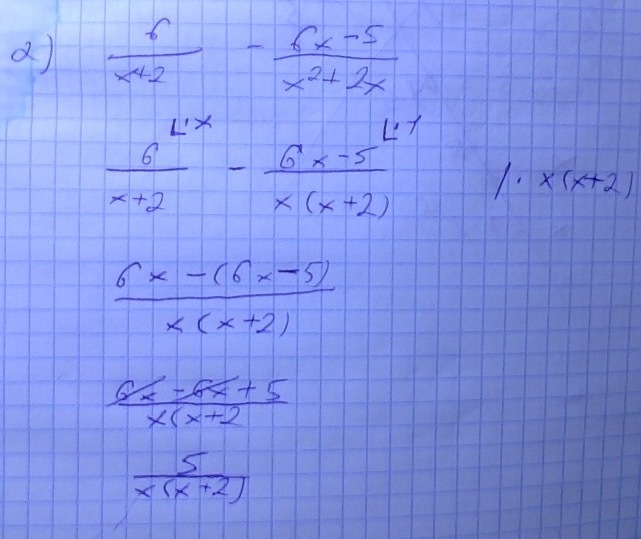 2) 6/(x+2) - (6x-5)/(x²+2x)
6/(x+2) ∟·x - (6x-5)/(x(x+2)) ∟·1 /· x(x+2)
(6x-(6x-5))/(x(x+2))
(6x-6x+5)/(x(x+2
5/(x(x+2))